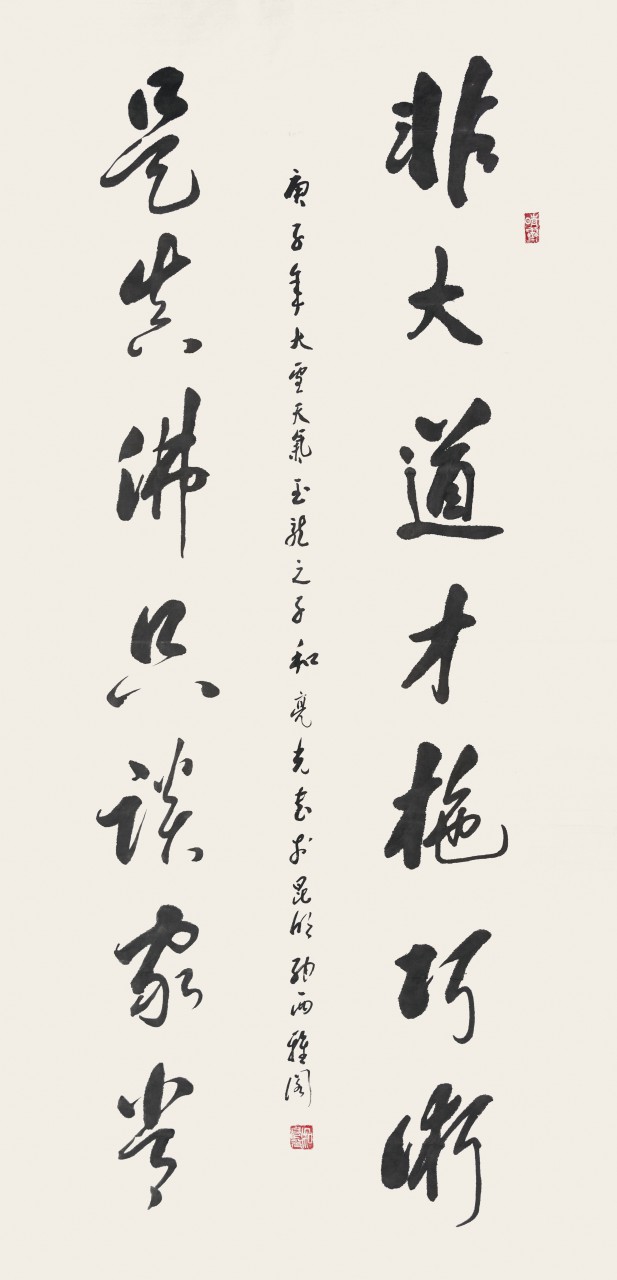 非大道才拖巧術
是真佛只談家常
庚子年大雪天氣玉龍之子和亮光書於昆明納西雅閣